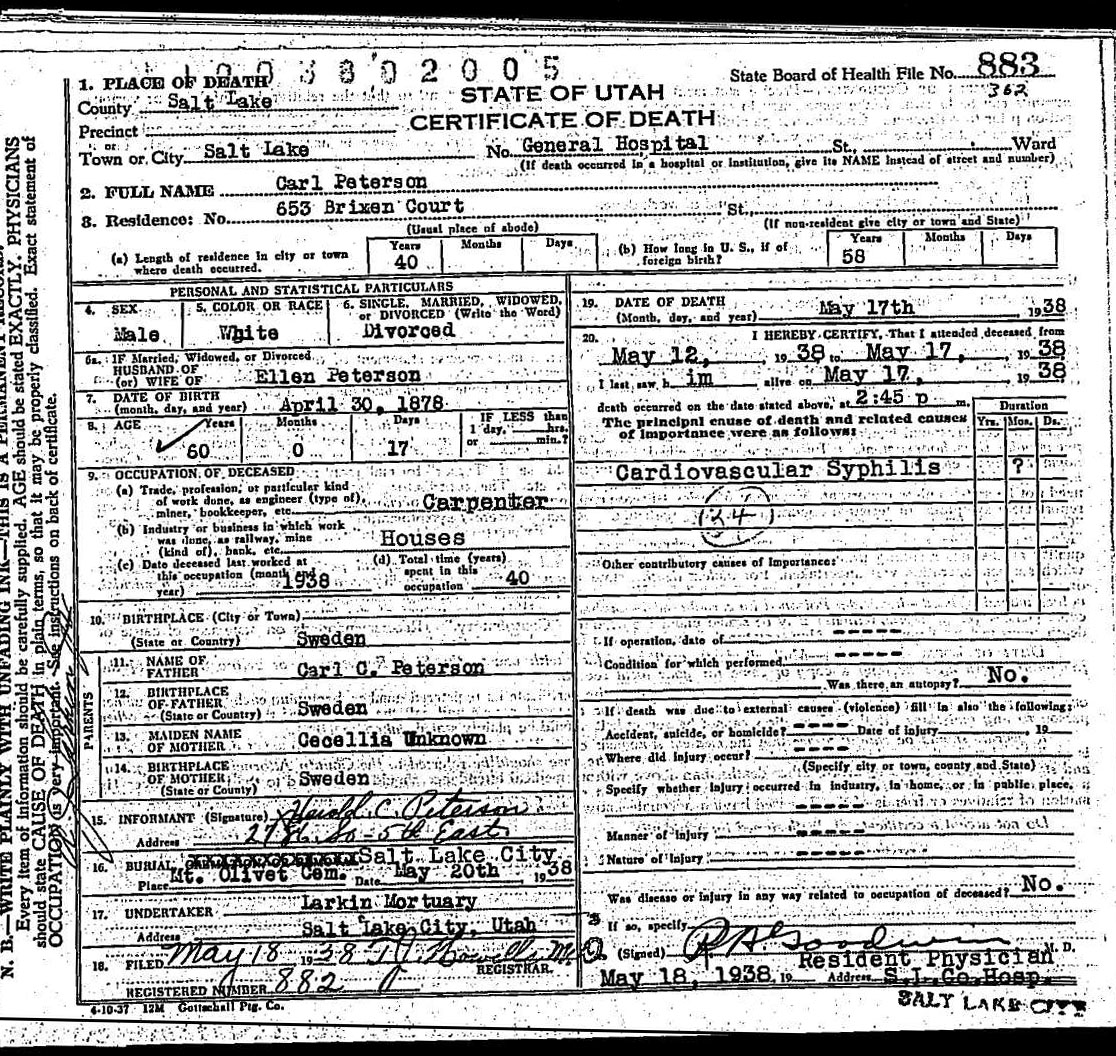 1003802005
State Board of Health File No. 883
362
1. PLACE OF DEATH
County Salt Lake
STATE OF UTAH
CERTIFICATE OF DEATH
Precinct
or
Town or City Salt Lake No. General Hospital St., Ward
(If death occurred in a hospital or institution, give its NAME instead of street and number)
2. FULL NAME Carl Peterson
3. Residence: No. 653 Brixen Court St.,
(Usual place of abode) (If non-resident give city or town and State)
(a) Length of residence in city or town where death occurred. Years 40 Months Days
(b) How long in U. S., if of foreign birth? Years 58 Months Days
PERSONAL AND STATISTICAL PARTICULARS
4. SEX Male
5. COLOR OR RACE White
6. SINGLE, MARRIED, WIDOWED, or DIVORCED (Write the Word) Divorced
6a. IF Married, Widowed, or Divorced
HUSBAND OF
(or) WIFE OF Ellen Peterson
7. DATE OF BIRTH
(month, day, and year) April 30, 1878
8. AGE Years 60 Months 0 Days 17 IF LESS than 1 day, hrs. or min.?
9. OCCUPATION OF DECEASED
(a) Trade, profession, or particular kind of work done, as engineer (type of), miner, bookkeeper, etc. Carpenter
(b) Industry or business in which work was done, as railway, mine (kind of), bank, etc. Houses
(c) Date deceased last worked at this occupation (month and year) 1938
(d) Total time (years) spent in this occupation 40
10. BIRTHPLACE (City or Town)
(State or Country) Sweden
PARENTS
11. NAME OF FATHER Carl C. Peterson
12. BIRTHPLACE OF FATHER
(State or Country) Sweden
13. MAIDEN NAME OF MOTHER Cecellia Unknown
14. BIRTHPLACE OF MOTHER
(State or County) Sweden
15. INFORMANT (Signature) Harold C. Peterson
Address So - 5th East
16. BURIAL, Salt Lake City
Place Mt. Olivet Cem. Date May 20th 1938
17. UNDERTAKER Larkin Mortuary
Address Salt Lake City, Utah
18. FILED May 18 1938 T J Howells M.D.
REGISTRAR.
REGISTERED NUMBER 882
4-10-37 12M Gottschall Ptg. Co.
19. DATE OF DEATH
(Month, day, and year) May 17th 1938
20. I HEREBY CERTIFY, That I attended deceased from
May 12, 1938 to May 17, 1938
I last saw him alive on May 17, 1938
death occurred on the date stated above, at 2:45 p m.
The principal cause of death and related causes of importance were as follows:
Duration
Yrs. Mos. Ds.
Cardiovascular Syphilis ?
(34)
Other contributory causes of importance:
If operation, date of -----
Condition for which performed -----
Was there an autopsy? No.
If death was due to external causes (violence) fill in also the following:
Accident, suicide, or homicide? ---- Date of injury , 19
Where did injury occur? ----
(Specify city or town, county and State)
Specify whether injury occurred in industry, in home, or in public place,
-----
Manner of injury -----
Nature of Injury -----
Was disease or injury in any way related to occupation of deceased? No.
If so, specify
(Signed) R A Goodwin M. D.
Resident Physician
May 18, 1938, 19 Address S.L.Co.Hosp.
SALT LAKE CITY
N. B.—WRITE PLAINLY WITH UNFADING INK—THIS IS A PERMANENT RECORD.
Every item of information should be carefully supplied. AGE should be stated EXACTLY. PHYSICIANS
should state CAUSE OF DEATH in plain terms, so that it may be properly classified. Exact statement of
OCCUPATION is very important. See instructions on back of certificate.